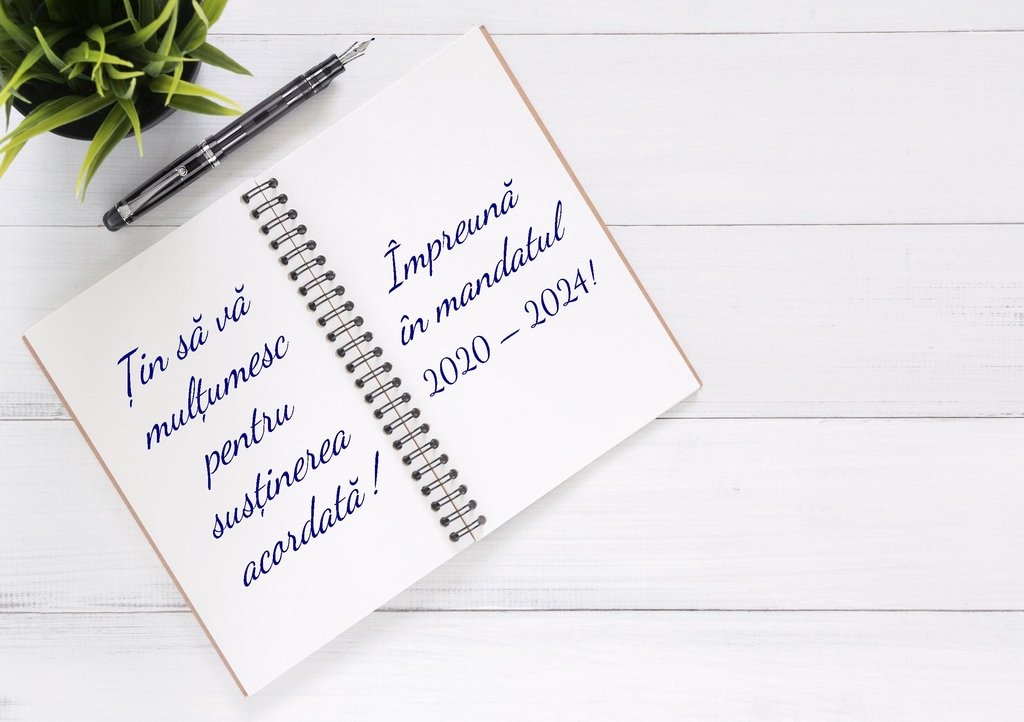 Țin să vă
mulțumesc
pentru
susținerea
acordată !
Împreună
în mandatul
2020 – 2024!